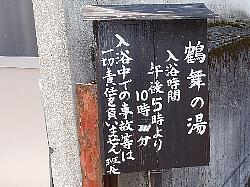 鶴舞の湯
入浴時間
午後5時より
10時
入浴中の事故等は
一切責任を負いません